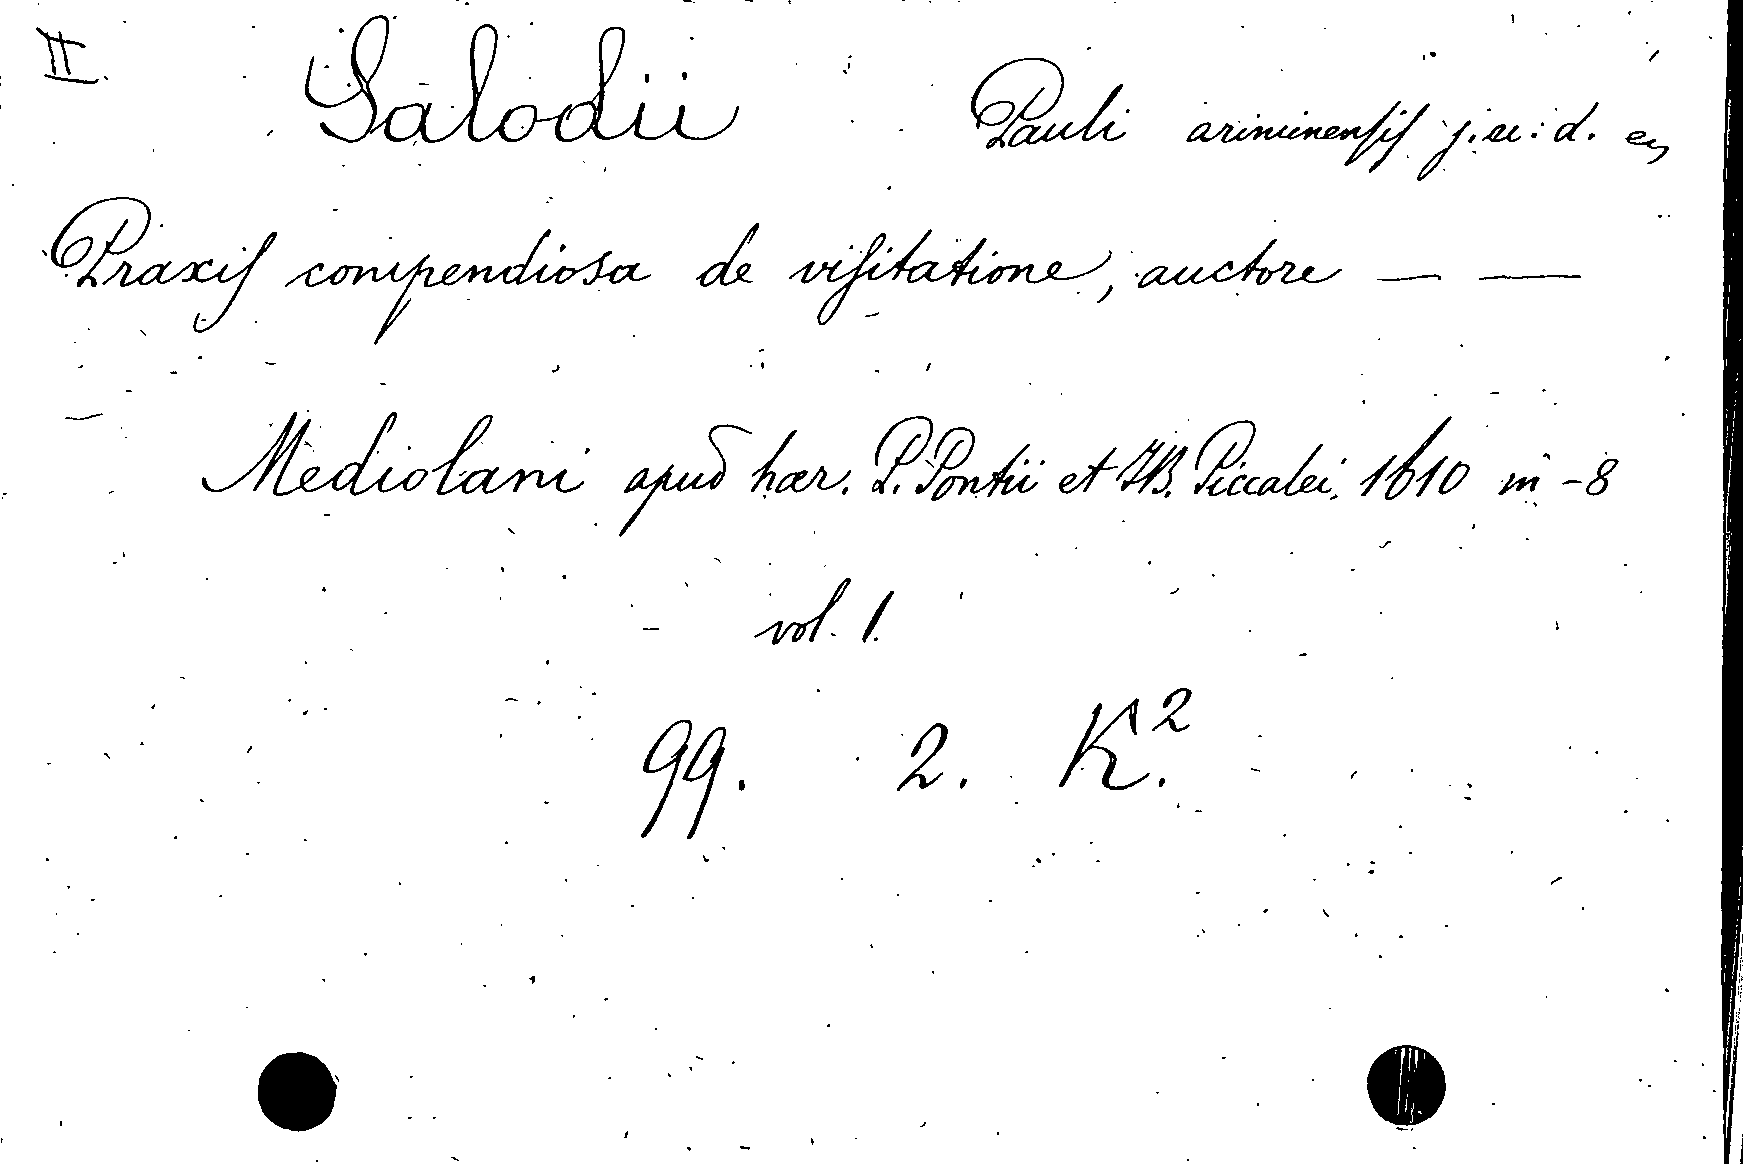 II. Salodii Pauli ariminensis j. u. d.
Praxis compendiosa de visitatione, auctore — —
Mediolani apud hær. P. Pontii et JB. Piccalei, 1610 in -8
vol. 1.
99. 2. K.²